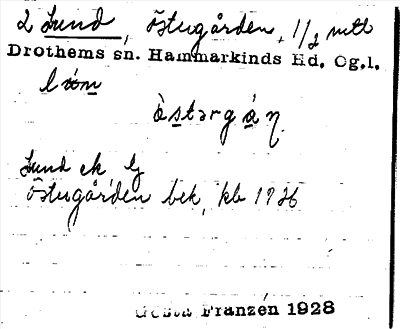 2 Lund, Östergården, 1/2 mtl
Drothems sn. Hammarkinds Hd. Ög.l.
òstərgán
Lund ek
Östergården bek, kb 1736
Gösta Franzén 1928